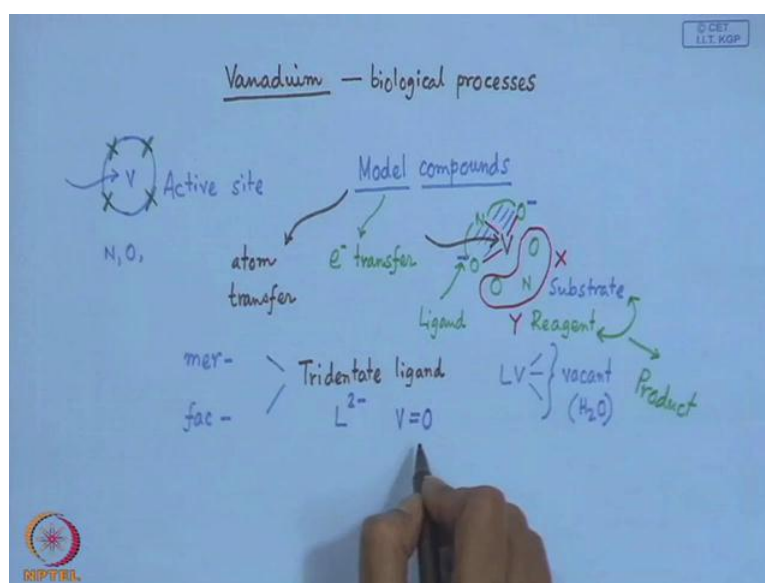 © CET
I.I.T. KGP
Vanaduim — biological processes
V
Active site
N, O,
Model compounds
atom transfer
e⁻ transfer
N
O⁻
V
⁻O
O
O
N
X
Y
Ligand
Substrate
Reagent
Product
mer-
fac-
Tridentate ligand
L²⁻ V=O
LV
vacant
(H₂O)
NPTEL